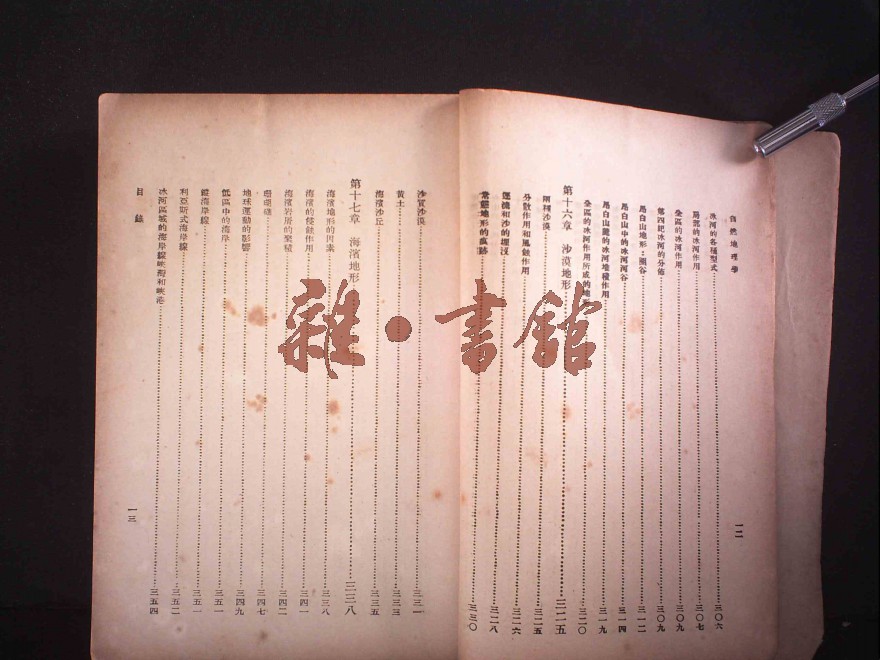 自然地理學
冰河的各種型式 三〇六
局部的冰河作用 三〇七
全區的冰河作用 三〇九
第四紀冰河的分佈 三〇九
局白山地形：圈谷 三一二
局白山中的冰河河谷 三一四
局白山麓的冰河堆積作用 三一九
全區的冰河作用所成的 三二〇
第十六章 沙漠地形 三二五
兩種沙漠 三二五
分散作用和風蝕作用 三二六
運搬和沙的堆沒 三二八
常態地形的痕跡 三三〇
一二
沙質沙漠 三三一
黃土 三三三
海濱沙丘 三三五
第十七章 海濱地形 三三八
海濱地形的因素 三三八
海濱的侵蝕作用 三四一
海濱岩屑的聚積 三四二
珊瑚礁 三四七
地球運動的影響 三四九
低區中的海岸 三五一
縱海岸線 三五一
利亞斯式海岸線 三五二
冰河區域的海岸線峽灣和峽港 三五四
目錄
一三
雜·書館